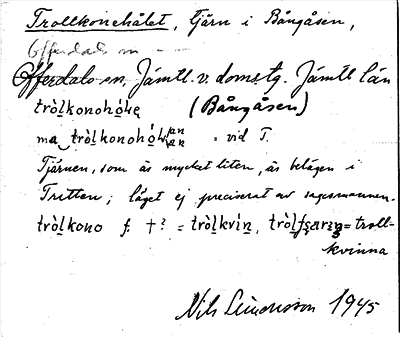 Trollkonehålet, tjärn i Bångåsen,
Offerdals sn
Offerdals sn, Jämtl. v. doms.tg. Jämtl. län
trò̀lkonohó̩lɛ (Bångåsen)
ma trò̀lkonohó̩ = vid T.
Tjärnen, som är mycket liten, är belägen i
Tretten; läget ej preciserat av sagesmannen.
trò̀lkono f. †? = trò̀lkvìn, = troll-
kvinna
Nils Simonsson 1945